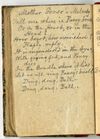 Mother Goose's Melody
Tell me where is Fancy bred
Or in the heart, or in the
head?
How begot, how nourished?
Reply, reply.
It is engendered in the eyes
With gazing fed, and Fancy
dies
In the cradle where it lies
Let us all ring Fancy's knell
Ding, dong, Bell
Ding, dong, Bell.